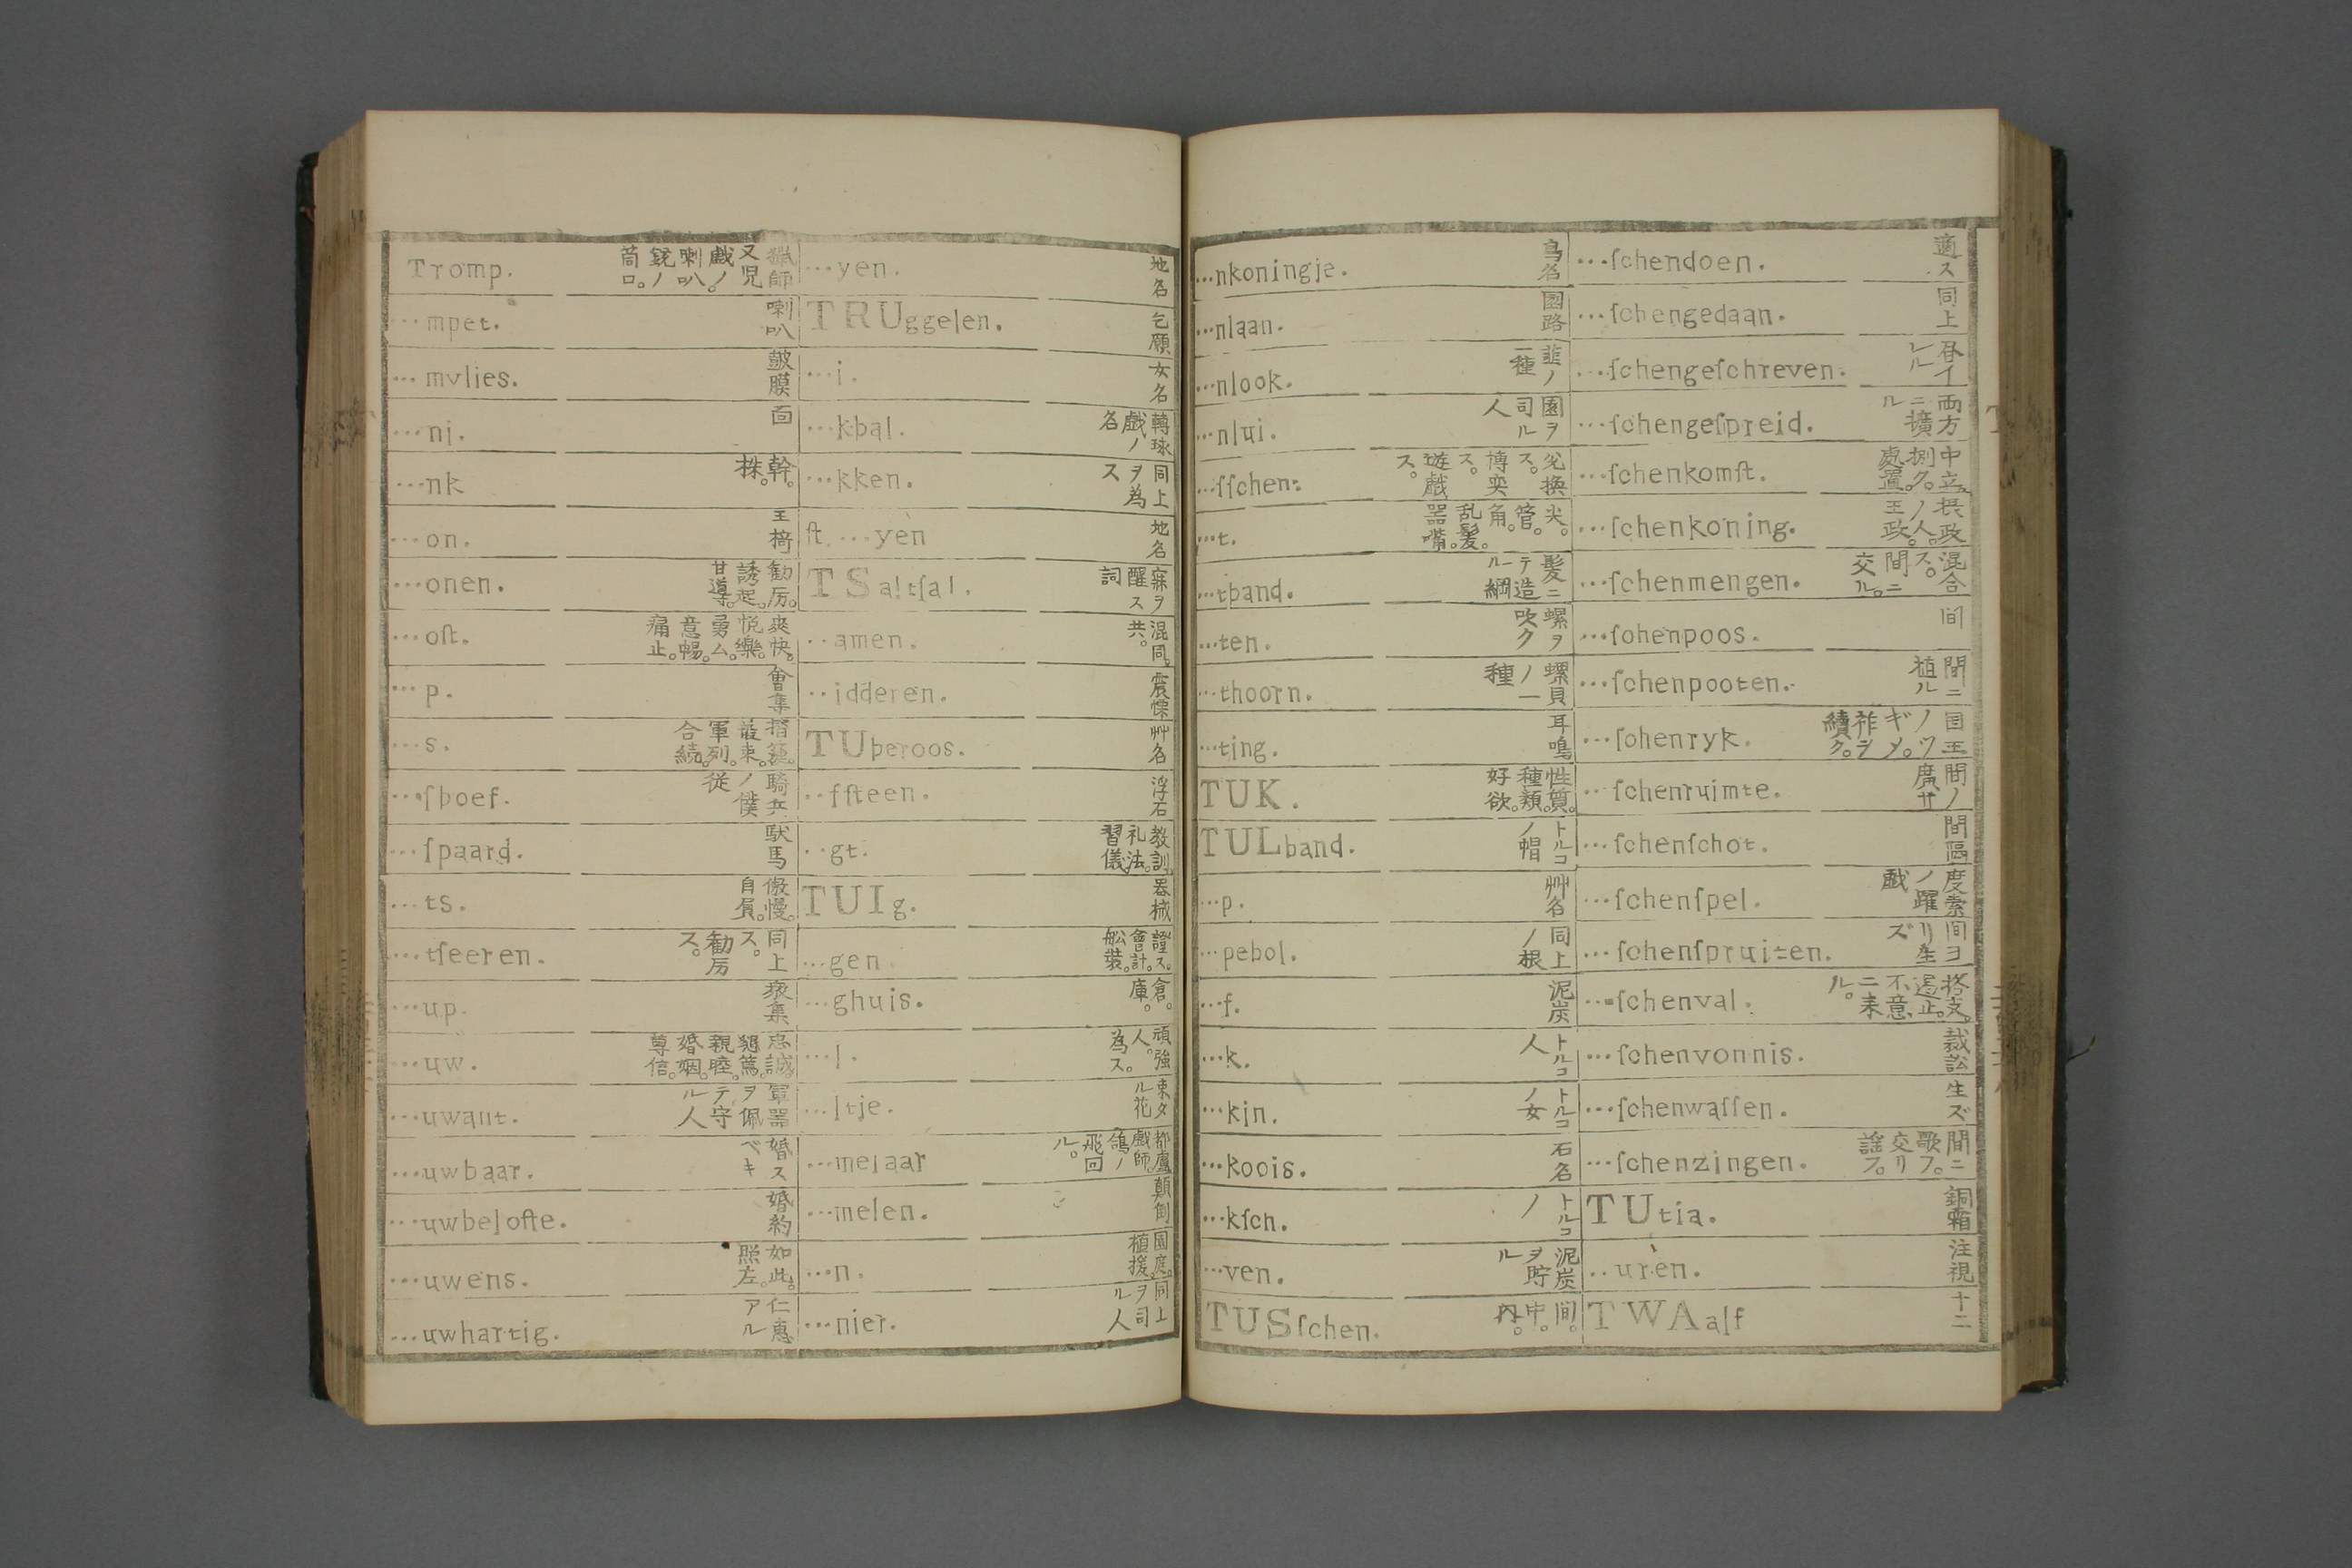 Tromp. 猟師又児戯ノ喇叭。銃ノ筒口。
…mpet. 喇叭
…mvlies. 皷膜
…ni. 面
…nk 幹。株。
…on. 王椅
…onen. 勧厉。誘起。甘導。
…oſt. 爽快。悦樂。勇ム。意暢。痛止。
…p. 會集
…s.
…ſboef. 騎兵ノ僕従
…ſpaard. 駄馬
…ts. 傲慢。自負。
…tſeeren. 同上ス。勧厉ス。
…up.
…uw. 忠誠。懇篤。親睦。婚姻。尊信。
…uwant. 軍器ヲ佩テ守ル人
…uwbaar. 婚スベキ
…uwbelofte. 婚約
…uwens. 如此。照左。
…uwhartig. 仁恵アル
…yen. 地名
TRUggelen. 乞願
…i. 女名
…kbal. 轉球戯ノ名
…kken. 同上ヲ為ス
ſt…yen 地名
TSaltſal. 寐ヲ醒ス詞
..amen. 混同。共。
..idderen. 震慄
TUberoos. 艸名
..fſteen. 浮石
..gt. 教訓。礼法。習儀。
TUIg. 器械
…gen 證ス。會計。舩裝。
…ghuis. 倉。庫。
…l. 頑強人。為ス。
…ltje. 束タル花
…melaar 都盧戯師。鴿ノ飛回ル。
…melen. 顛倒
…n. 園庭。植援。
…nier. 同上ヲ司ル人
…nkoningje. 鳥名
…nlaan. 園路
…nlook. 韮ノ一種
…nlui. 園ヲ司ル人
…ſſchen. 兌換ス。博奕ス。遊戯ス。
…t. 尖。管。角。乱髪。器嘴。
…tband. 髪ニテ造ル綱
…ten. 螺ヲ吹ク
…thoorn. 螺貝ノ一種
…ting. 耳鳴
TUK. 性質。種類。好欲。
TULband. トルコノ帽
…p. 艸名
…pebol. 同上ノ根
…f. 泥炭
…k. トルコ人
…kin. トルコノ女
…koois. 石名
…kſch. トルコノ
…ven. 泥炭ヲ貯ル
TUSſchen. 間。中。内。
…ſchendoen. 適ス
…ſchengedaan. 同上
…ſchengeſchreven.
…ſchengeſpreid. 両方ニ擴ル
…ſchenkomſt. 中立。捌ク。處置。
…ſchenkoning. 摂政ノ人。王政。
…ſchenmengen. 混合ス。間ニ交ル。
…ſchenpoos. 間
…ſchenpooten. 間ニ植ル
…ſchenryk. 国王ノツギメ。祚ヲ續ク。
…ſchenruimte. 間ノ廣サ
…ſchenſchot. 間隔
…ſchenſpel.
…ſchenſpruiten. 間ヨリ生ズ
…ſchenval. 遏止。不意ニ来ル。
…ſchenvonnis. 裁訟
…ſchenwaſſen. 生ズ
…ſchenzingen. 間ニ歌フ。交リ謡フ。
TUtia. 銅霜
..uren. 注視
TWAalf 十二